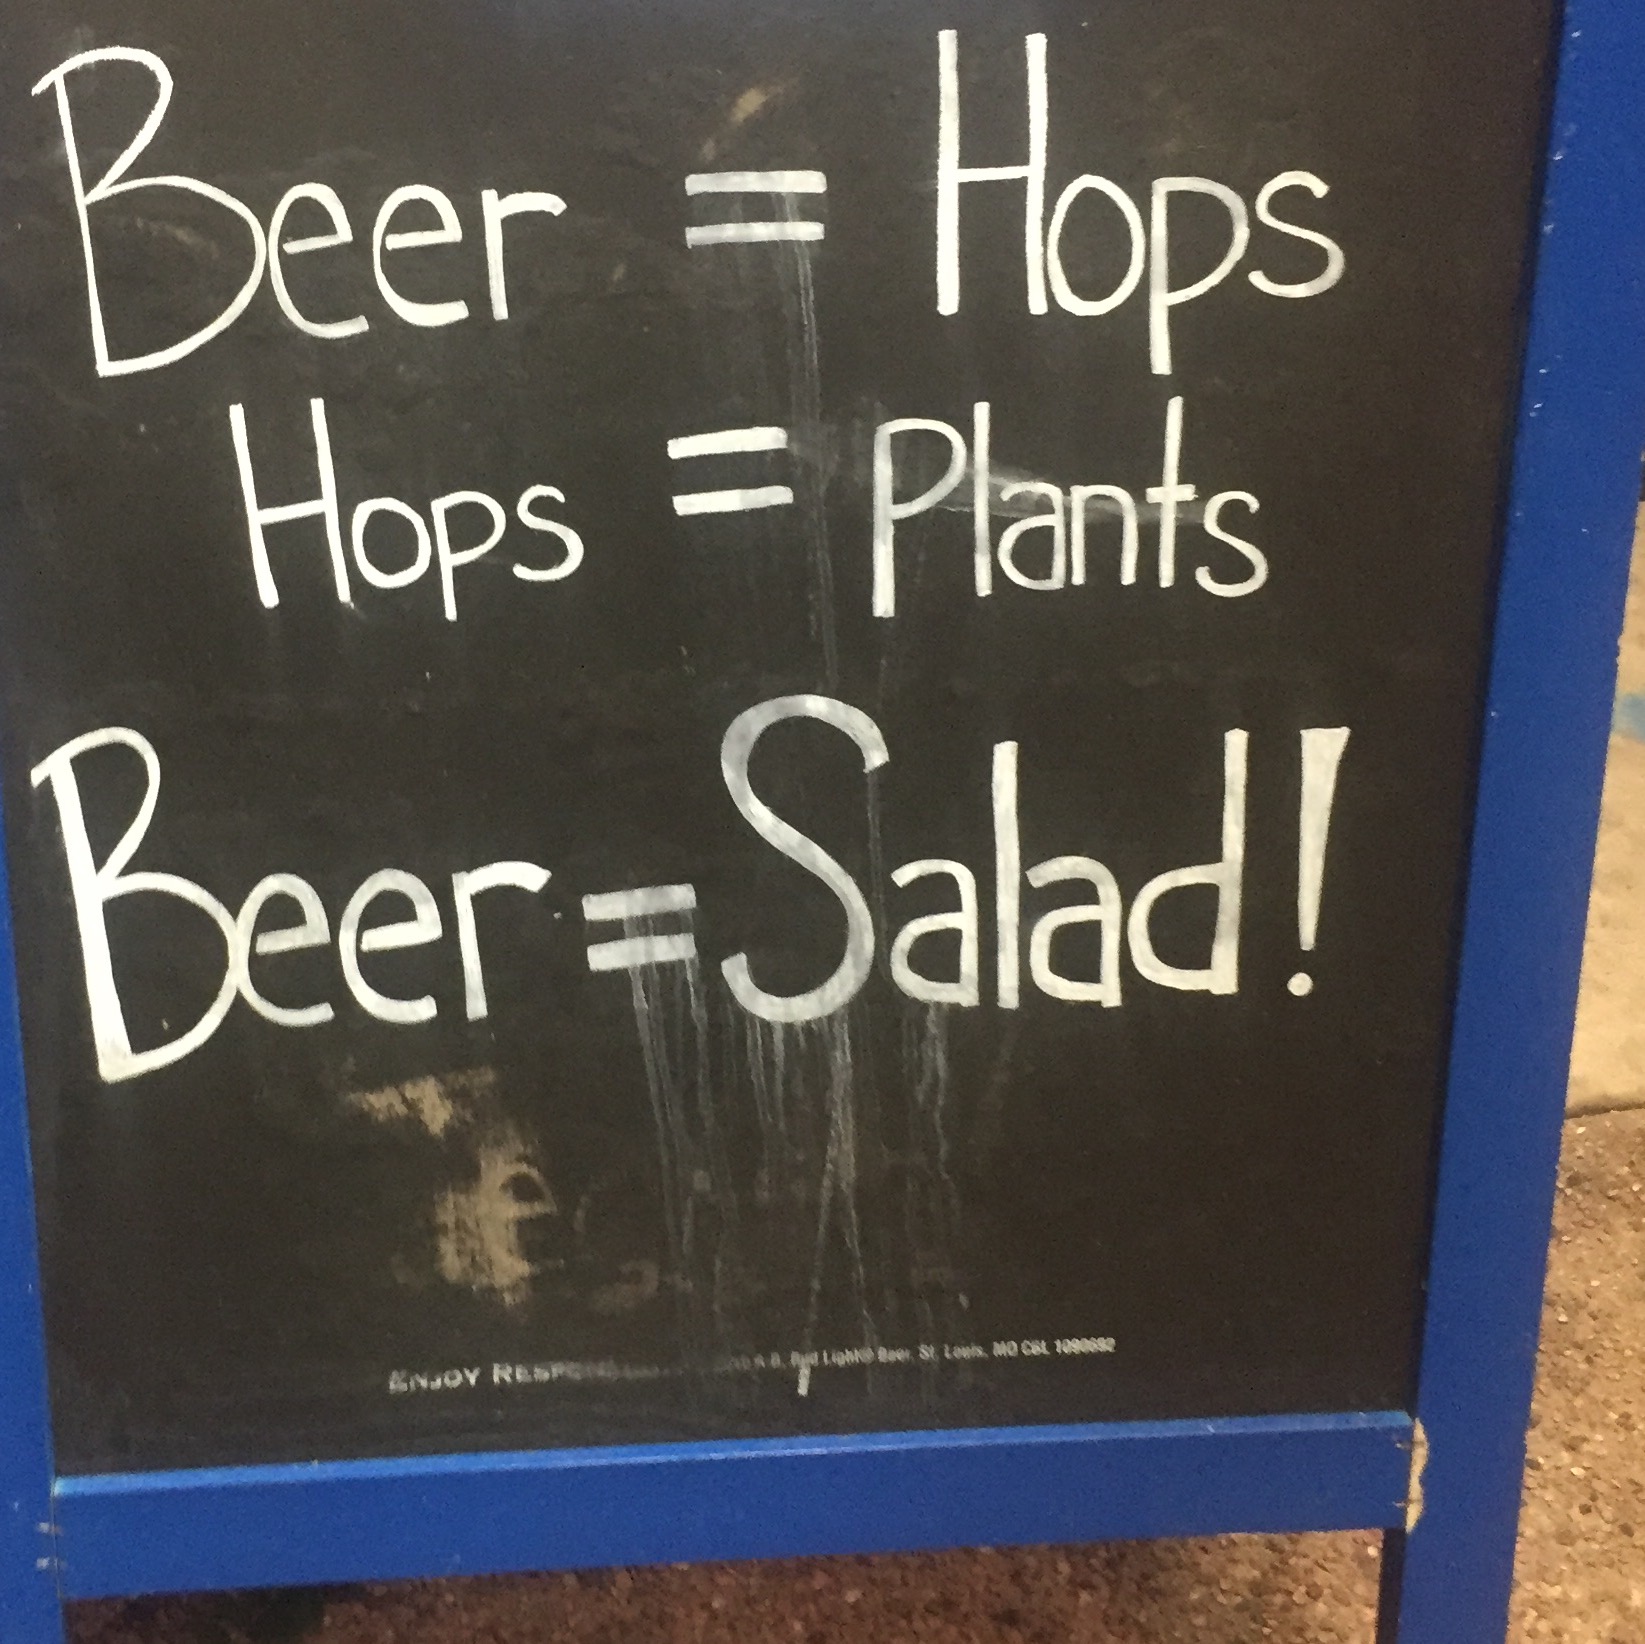 Beer = Hops
Hops = Plants
Beer = Salad!
ENJOY A.B. Bud Light® Beer, St. Louis, MO CBL 1090692